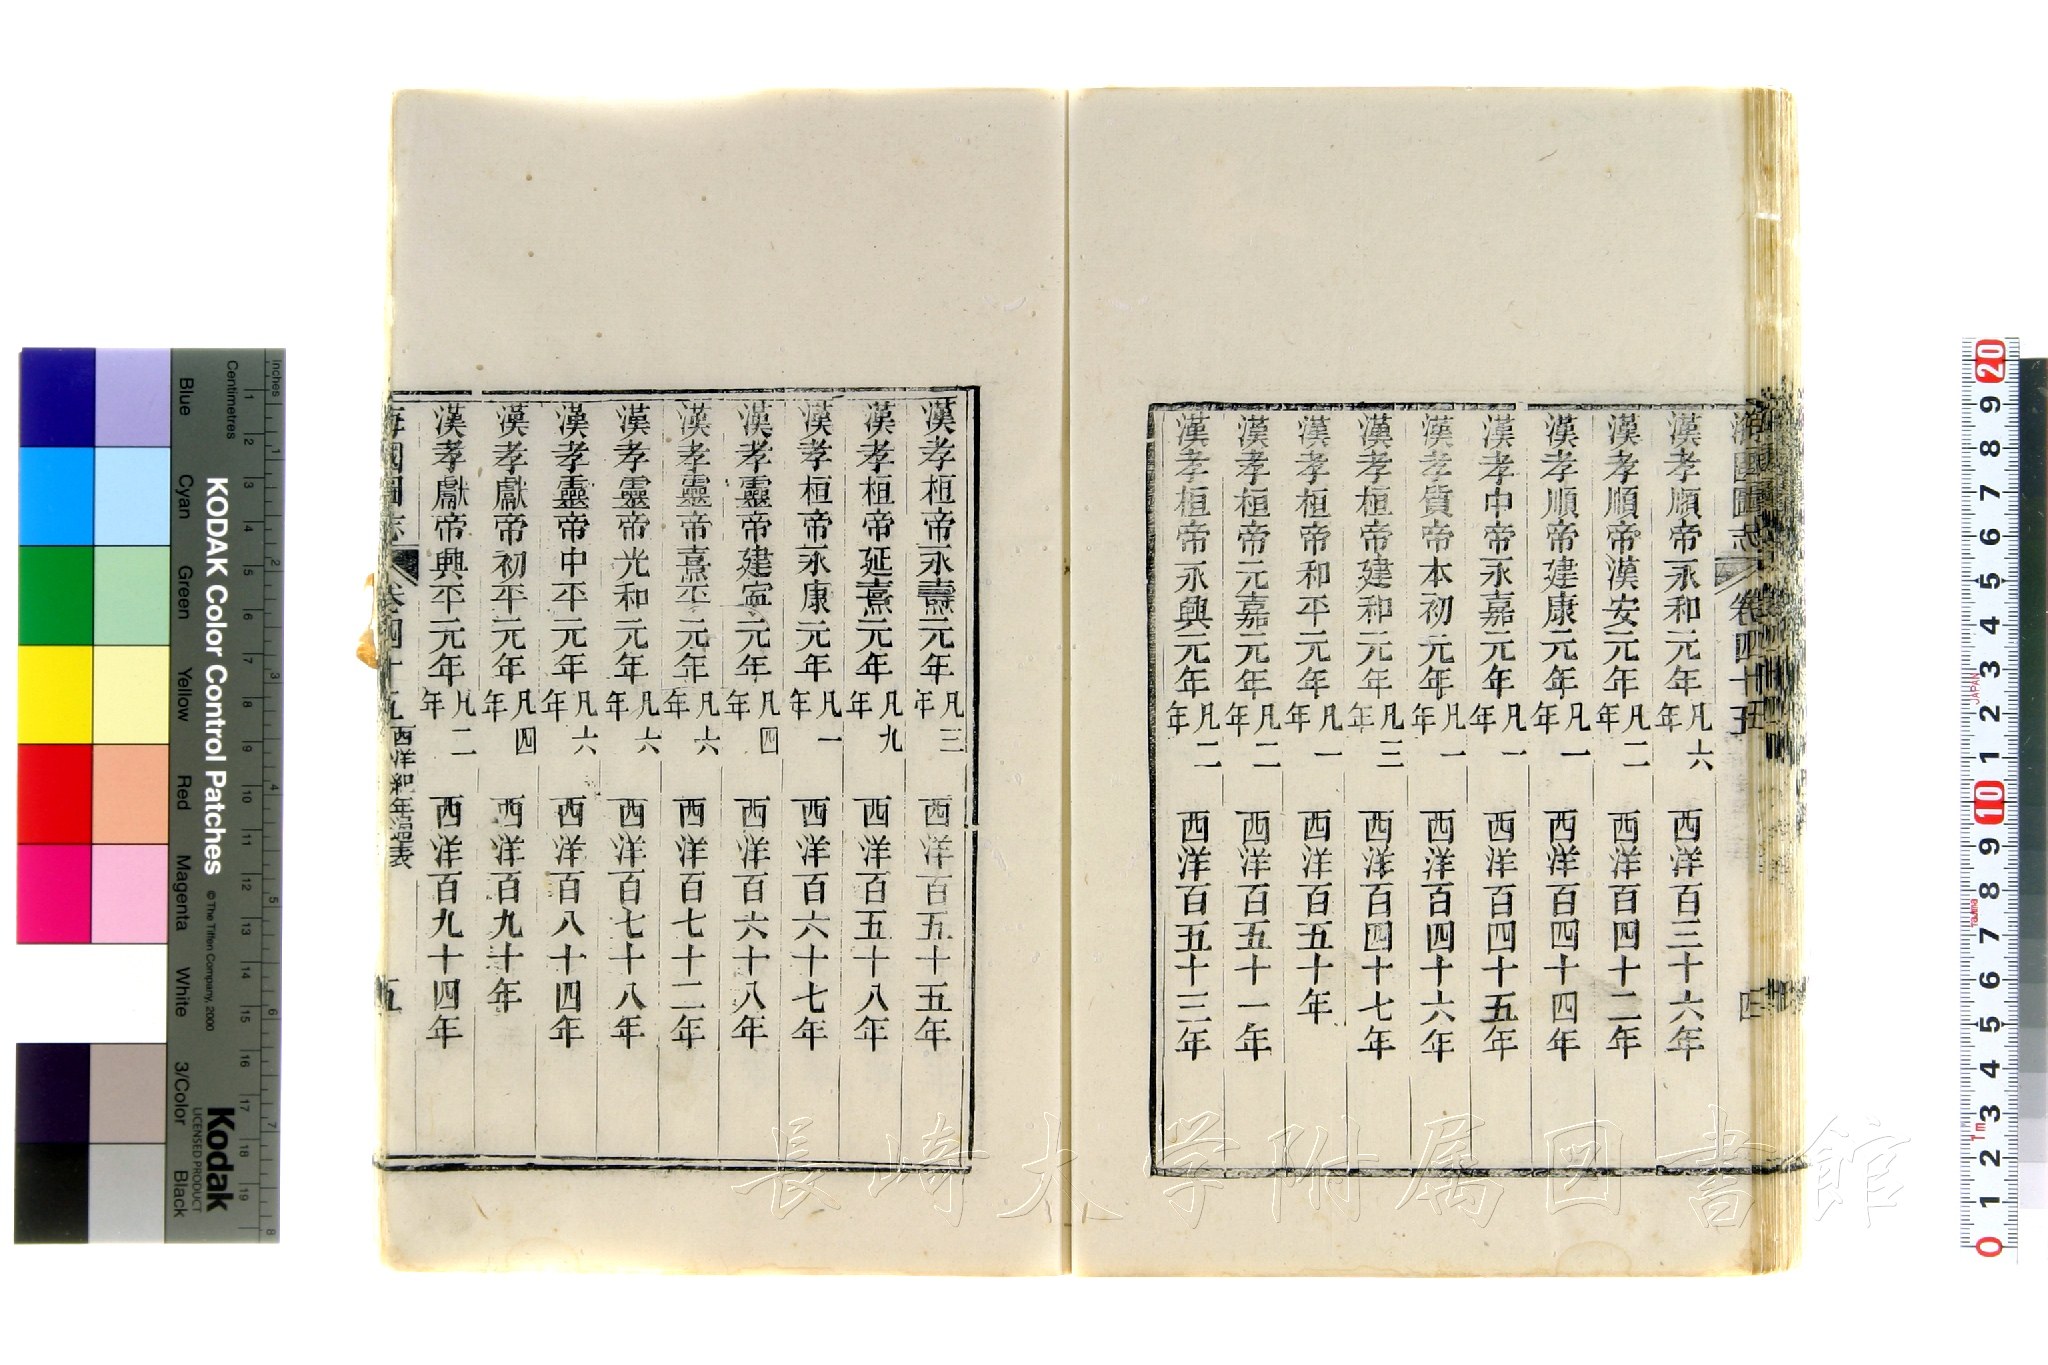 海國圖志 卷四十五 四
漢孝順帝永和元年凡六年 西洋百三十六年
漢孝順帝漢安元年凡二年 西洋百四十二年
漢孝順帝建康元年凡一年 西洋百四十四年
漢孝中帝永嘉元年凡一年 西洋百四十五年
漢孝質帝本初元年凡一年 西洋百四十六年
漢孝桓帝建和元年凡三年 西洋百四十七年
漢孝桓帝和平元年凡一年 西洋百五十年
漢孝桓帝元嘉元年凡二年 西洋百五十一年
漢孝桓帝永興元年凡二年 西洋百五十三年
漢孝桓帝永壽元年凡三年 西洋百五十五年
漢孝桓帝延熹元年凡九年 西洋百五十八年
漢孝桓帝永康元年凡一年 西洋百六十七年
漢孝靈帝建寧元年凡四年 西洋百六十八年
漢孝靈帝熹平元年凡六年 西洋百七十二年
漢孝靈帝光和元年凡六年 西洋百七十八年
漢孝靈帝中平元年凡六年 西洋百八十四年
漢孝獻帝初平元年凡四年 西洋百九十年
漢孝獻帝興平元年凡二年 西洋百九十四年
海國圖志 卷四十五 西洋紀年通表 五
長崎大学附属図書館
KODAK Color Control Patches
© The Tiffen Company, 2000
Kodak
LICENSED PRODUCT
Inches
Centimetres
Blue
Cyan
Green
Yellow
Red
Magenta
White
3/Color
Black
1 2 3 4 5 6 7 8 9 10 11 12 13 14 15 16 17 18 19
1 2 3 4 5 6 7 8
20 9 8 7 6 5 4 3 2 1 10 9 8 7 6 5 4 3 2 1 0
JAPAN
1m